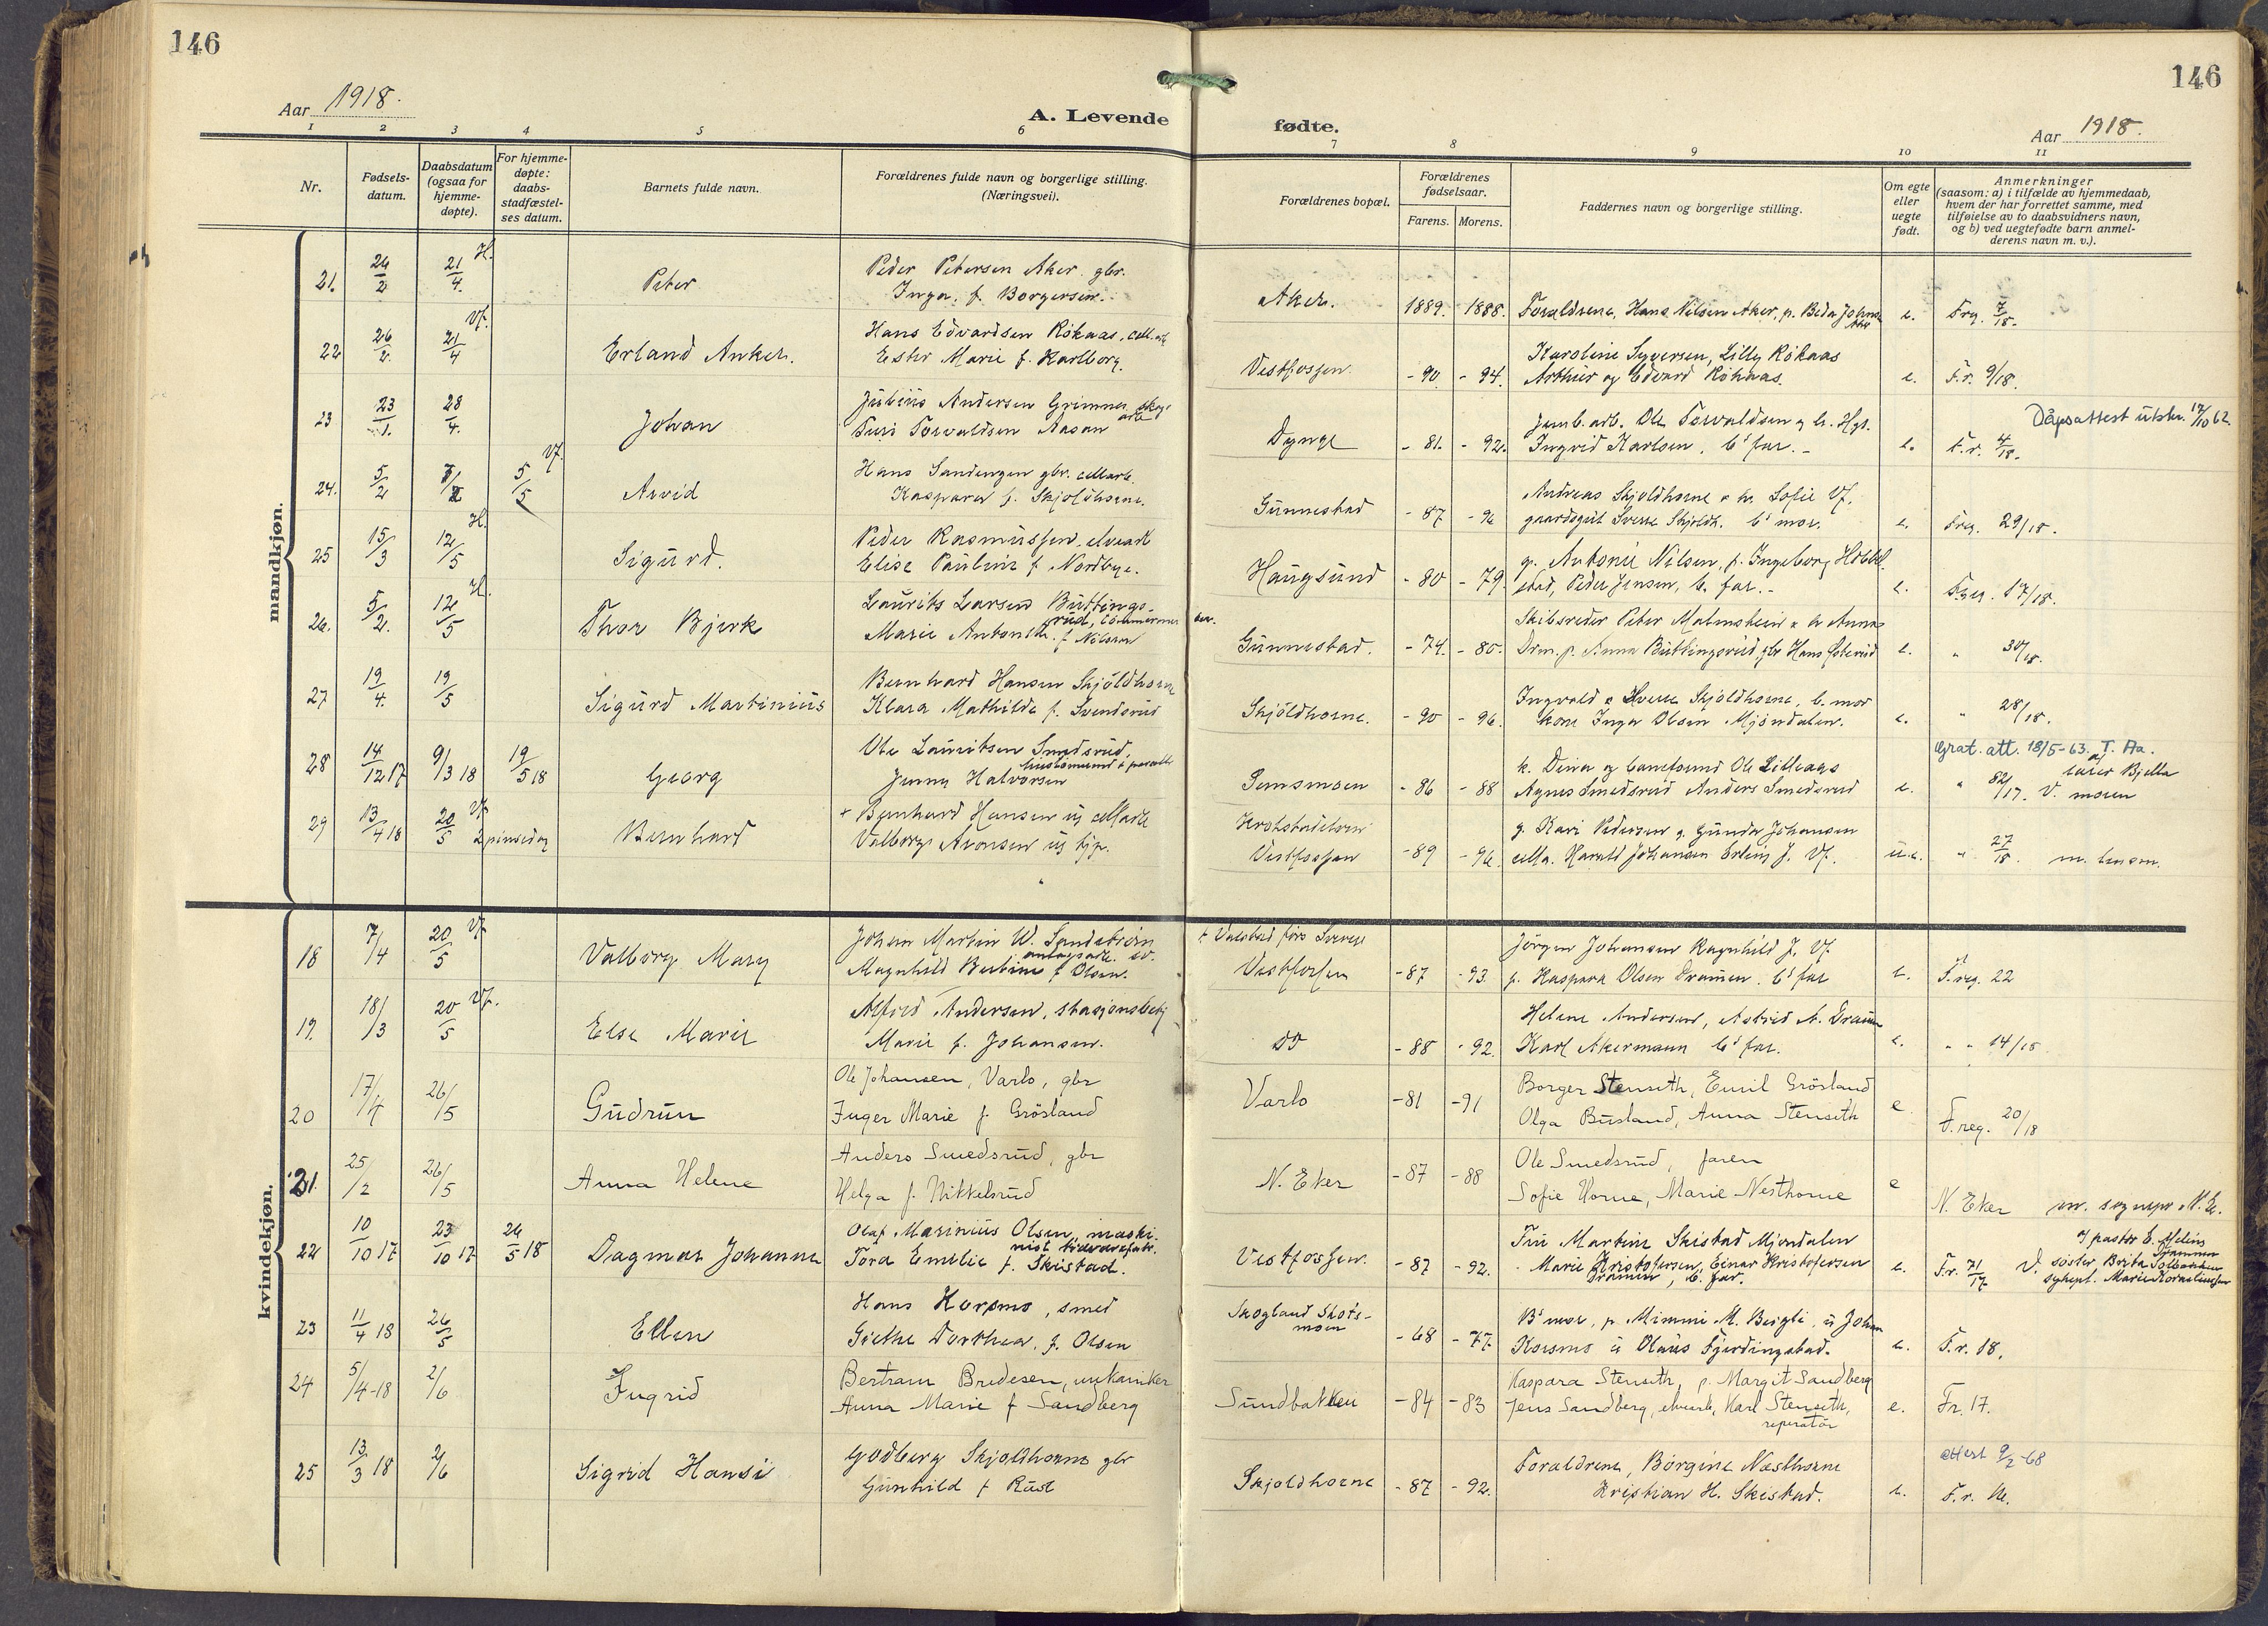 146
146
Aar 1918.
A. Levende fødte.
Aar 1918.
1 2 3 4 5 6 7 8 9 10 11
Nr.
Fødsels-
datum.
Daabsdatum
(ogsaa for
hjemme-
døpte).
For hjemme-
døpte:
daabs-
stadfæstel-
ses datum.
Barnets fulde navn.
Forældrenes fulde navn og borgerlige stilling.
(Næringsvei).
Forældrenes bopæl.
Forældrenes
fødselsaar.
Farens. Morens.
Faddernes navn og borgerlige stilling.
Om egte
eller
uegte
født.
Anmerkninger
(saasom: a) i tilfælde av hjemmedaab,
hvem der har forrettet samme, med
tilføielse av to daabsvidners navn,
og b) ved uegtefødte barn anmel-
derens navn m. v.).
mandkjøn.
21. 24/2 21/4. H. Peter
Peder Petersen Aker gbr.
Inga, f. Borgersen.
Aker. 1889. 1888.
Forældrene, Hans Nilsen Aker, p.
e. Frg. 7/18.
22 26/2. 21/4 Vf. Erland Anker.
Hans Edvardsen Røkaas,
Ester Marie f. Karlborg.
Vestfossen. -90. -94.
Karoline Syversen, Lilly Røkaas
Arthur og Edvard Røkaas.
e. F.r. 9/18.
23 23/1. 28/4. Johan
Julius Andersen Grimnes
Turi Torvaldsen Aasan
Dynge -81. -92.
Jernb. arb. Ole Torvaldsen
Ingrid Karlsen, b's far.-
e. F.r. 4/18.
Dåpsattest utskr. 17/10 62.
24. 5/2 5/5 Vf. Arvid
Hans Sandengen gbr.
Kaspara f. Skjoldhorne.
Gunnestad -87
Andreas Skjoldhorne Sofie Vf.
gaardsgut Sverre Skjoldh. b's mor.
e. Freg. 29/18.
25 15/3 12/5 H. Sigurd.
Peder Rasmussen
Elise Pauline f Nordbye.
Haugsund -80 -79.
g. Antonie Nilsen, p. Ingeborg
Peder Jensen, b. far.-
e. Freg. 17/18.
26. 5/2. 12/5 H. Thor Bjerk
Laurits Larsen Buttings-
rud, tømmermand
Marie f Nilsen
Gunnestad. -74. -80.
Skibsreder Peter Malmstein Anna
Drm. p. Anna Buttingsrud gbr Hans
e. " 30/18.
27 19/4. 19/5 Sigurd Martinius
Bernhard Hansen Skjoldhorne
Klara Mathilde f. Svendsrud
Skjöldhorne. -90 -96.
Ingvald Sverre Skjoldhorne, b. mor
kone Inga Olsen Mjøndalen.
e. " 28/18.
28 14/12 17 9/3 18 19/5 18 Georg
Ole Lauritsen Smedsrud,
Jenny Halvorsen
Semsmoen -86 -88
k. Dina og Ole Lilleaas
Agnes Smedsrud Anders Smedsrud
e. " 82/17. V. moren
Grat. att. 18/5-63. T. Aa.
lærer Bjella
29 13/4 18 20/5 Vf. 2 pinsedag Bernhard
+ Bernhard Hansen
Valborg Aronsen
Krokstadelven
Vestfossen -89 -96.
g. Kari Pedersen g. Gunda Johansen
Harald Johansen Erling J. Vf.
u.e. " 27/18.
kvindekjøn.
18 7/4 20/5 Vf. Valborg Mary
Johan Martin W. Sandström
Magnhild Bertine f Olsen.
Vestfossen -87 -93.
Jørgen Johansen Ragnhild J. Vf.
p. Kaspara Olsen Drammen. b's far
e. F.reg. 22
19. 18/3 20/5 Vf. Else Marie
Alfred Andersen, stasjonsbetj
Marie f. Johansen.
do -88 -92.
Helene Andersen, Astrid A. Drammen
Karl Akermann b's far.
e. " " 14/18
20 17/4 26/5 Gudrun
Ole Johansen, Varlo, gbr
Inger Marie f Grösland
Varlo -81 -91
Borger Stenseth, Emil Grösland
Olga Busland, Anna Stenseth
e F.reg. 20/18
21. 25/2 26/5 Anna Helene
Anders Smedsrud, gbr
Helga f. Mikkelsrud
N. Eker -87 -88
Ole Smedsrud, faren
Sofie Horne, Marie Nesthorne
e N. Eker
22 10/10 17 23/10 17 26/5 18 Dagmar Johanne
Olaf Marinius Olsen, maski-
nist
Tora Emilie f. Skistad.
Vestfossen. -87 -92.
Fru Martine Skistad Mjøndalen
Marie Kristofersen, Einar Kristofersen
Drammen, b. far.
e. F.r. 71/17
af pastor E. Melins
Drammen
V. søster Borta
sykepl. Marie
23 11/4 18 26/5 Ellen
Hans Korsmo, smed
Grethe Dorthea, f. Olsen
Skogland Skots-
moen -68 -77.
B's mor, p. Mimmi M. Berget, u Johan
Korsmo u Olaus Fjerdingstad.
e. F.r. 18.
24 5/4-18 2/6 Ingrid
Bertram Bredesen, mekaniker
Anna Marie f Sandberg
Sundbakken -84 -83
Kaspara Stenseth, p. Margit Sandberg
Jens Sandberg, Karl Stenseth,
reparatör
e. Fr. 17.
25 13/3 18 2/6 Sigrid Hansi
Godberg Skjoldhorne gbr
Gunhild f Rust
Skjoldhorne -87 -92.
Forældrene, Borgine Næsthorne
Kristian H. Skistad.
e. F.r.
attest 9/2-68